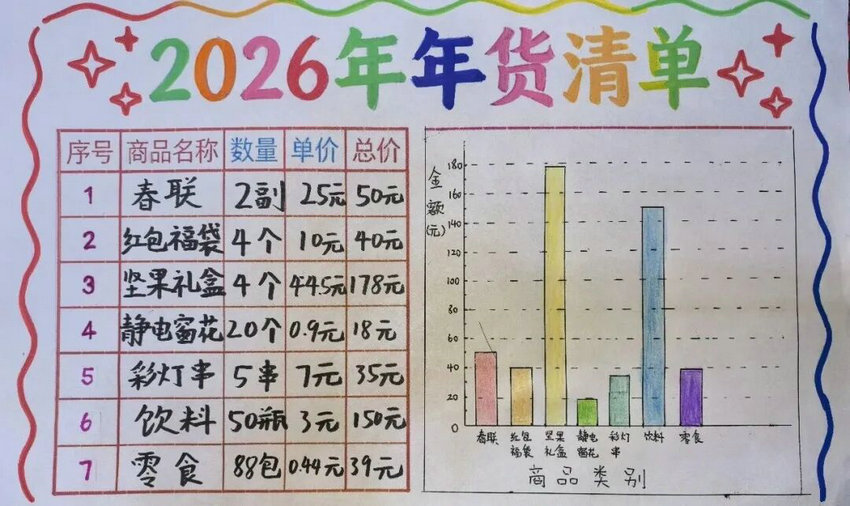 2026年年货清单
序号 商品名称 数量 单价 总价
1 春联 2副 25元 50元
2 红包福袋 4个 10元 40元
3 坚果礼盒 4个 44.5元 178元
4 静电窗花 20个 0.9元 18元
5 彩灯串 5串 7元 35元
6 饮料 50瓶 3元 150元
7 零食 88包 0.44元 39元
金额(元)
180
160
140
120
100
80
60
40
20
0
春联 红包福袋 坚果礼盒 静电窗花 彩灯串 饮料 零食
商品类别